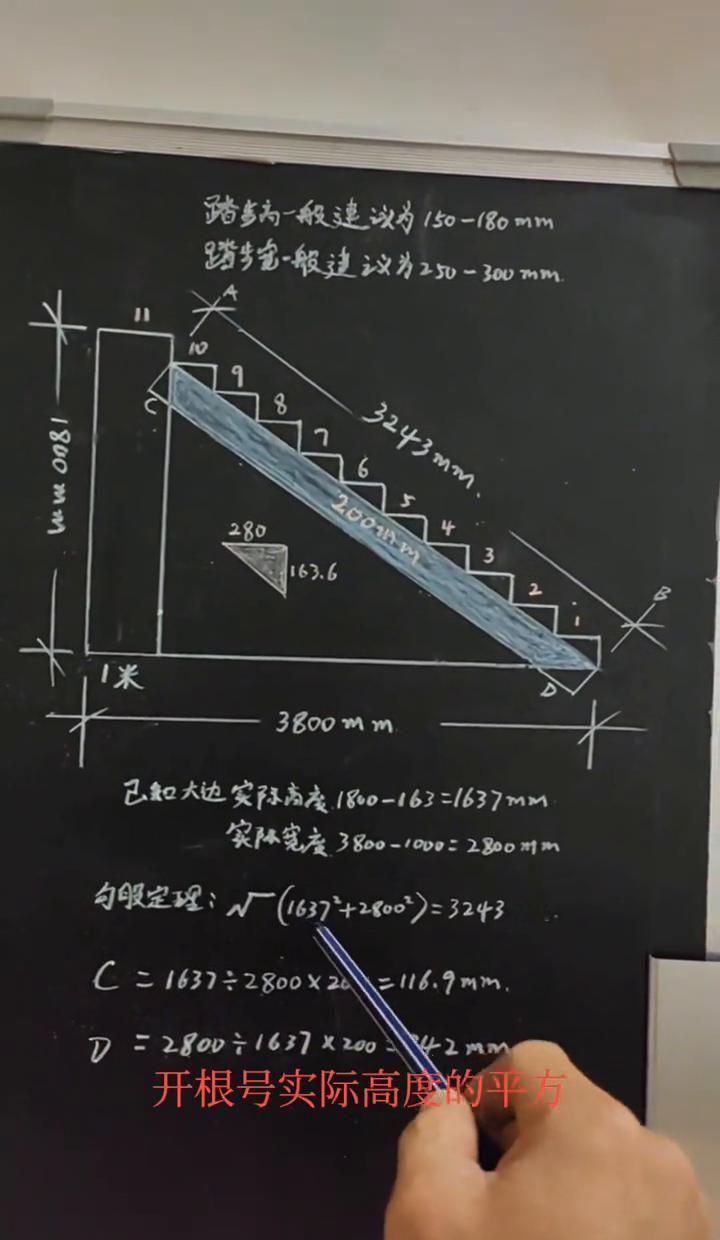 踏步高一般建议为150-180mm
踏步宽一般建议为250-300mm.
A
11
10
9
8
7
6
5
4
3
2
1
C
3243mm.
1800mm
200mm
280
163.6
B
D
1米
3800mm
已知大边实际高度.1800-163=1637mm
实际宽度.3800-1000=2800mm
勾股定理:√(1637²+2800²)=3243
C=1637÷2800×2 =116.9mm.
D=2800÷1637×200 42mm
开根号实际高度的平方